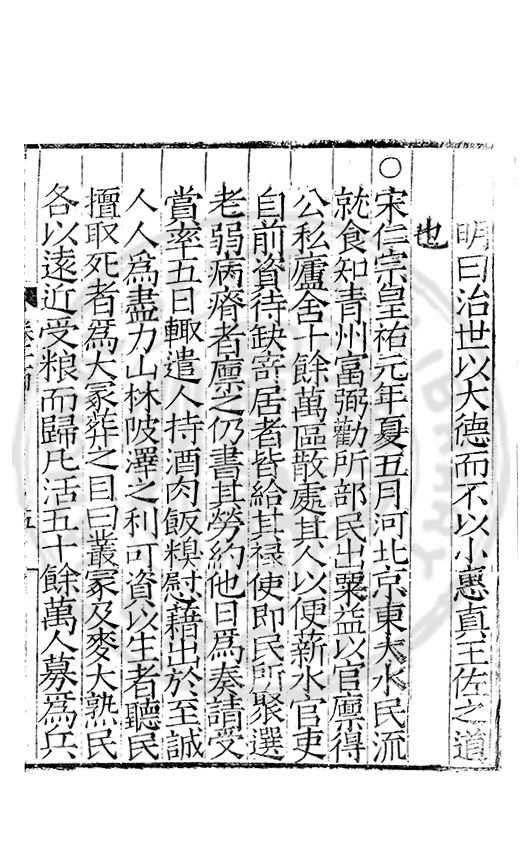 明曰治世以大德而不以小惠真王佐之道
也
○宋仁宗皇祐元年夏五月河北京東大水民流
就食知青州富弼勸所部民出粟益以官廪得
公私廬舍十餘萬區散處其人以便薪水官吏
自前資待缺寄居者皆給其禄使即民所聚選
老弱病瘠者廪之仍書其勞約他日為奏請受
賞率五日輒遣人持酒肉飯糗慰藉出於至誠
人人為盡力山林陂澤之利可資以生者聽民
擅取死者為大冢葬之目曰叢冢及麥大熟民
各以遠近受粮而歸凡活五十餘萬人募為兵